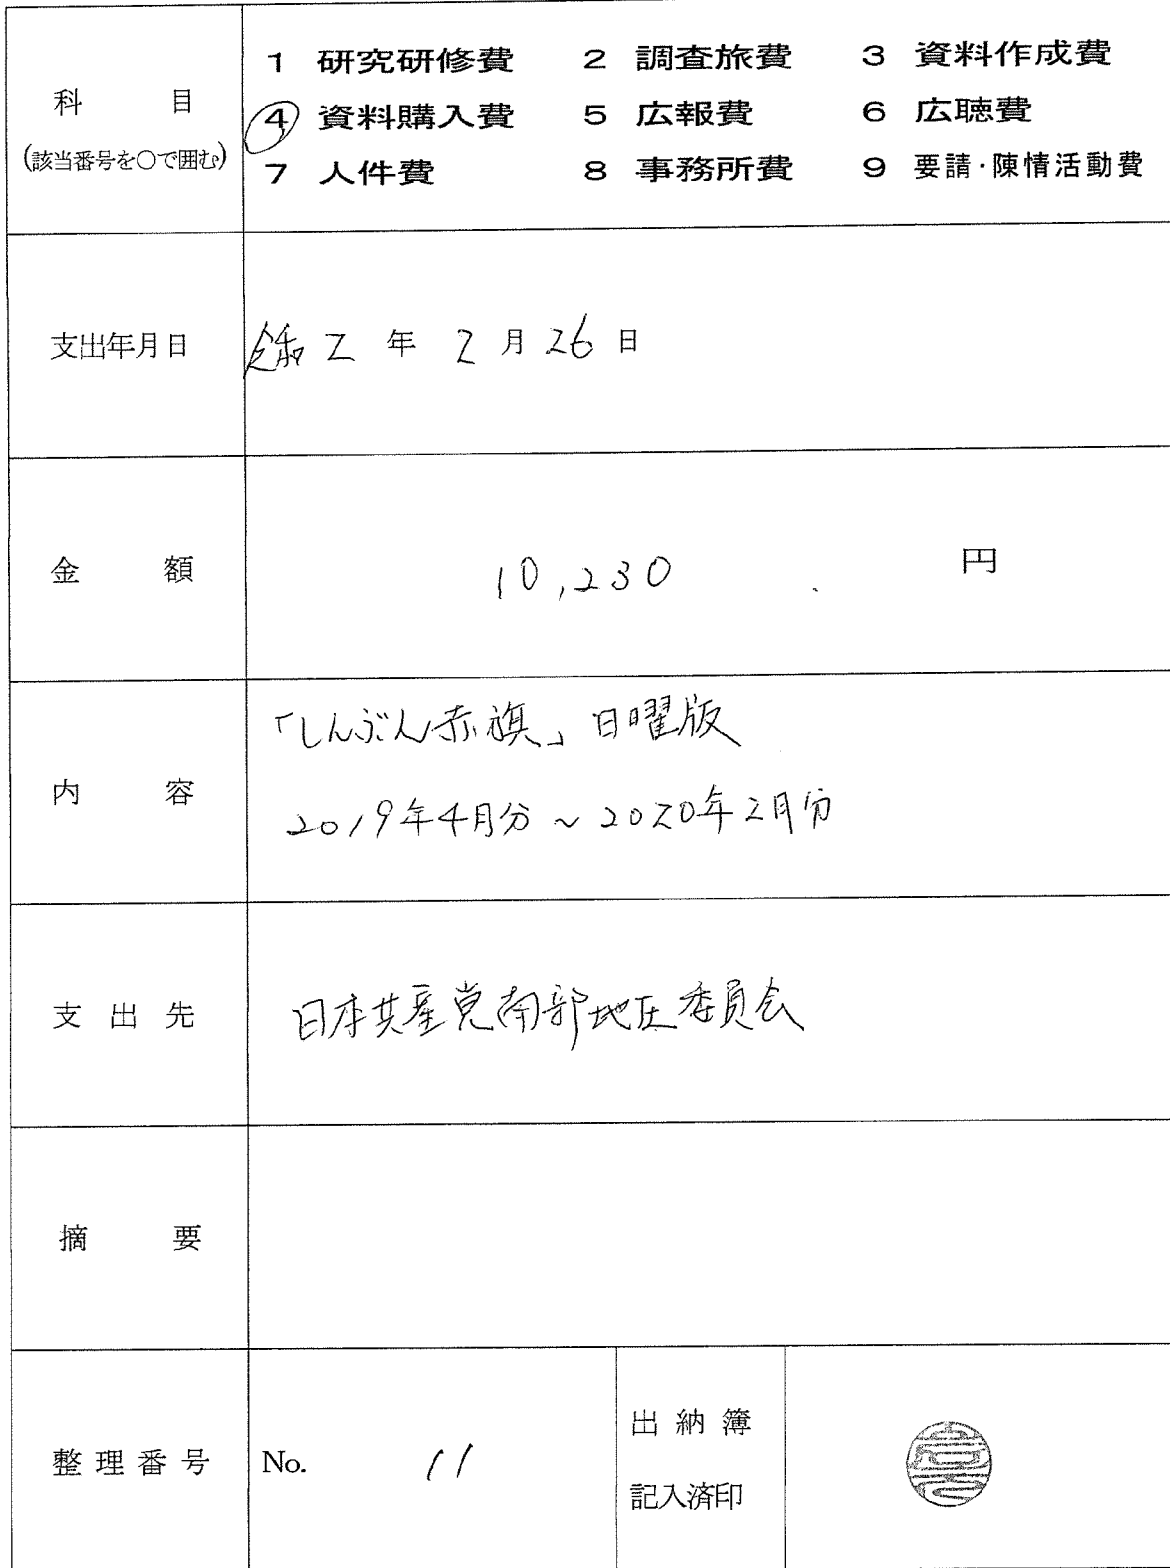 科 目
(該当番号を○で囲む)
1 研究研修費 2 調査旅費 3 資料作成費
④ 資料購入費 5 広報費 6 広聴費
7 人件費 8 事務所費 9 要請・陳情活動費
支出年月日
令和 2 年 2 月 26 日
金 額
10,230 円
内 容
「しんぶん赤旗」日曜版
2019年4月分~2020年2月分
支 出 先
日本共産党南部地区委員会
摘 要
整 理 番 号
No. 11
出 納 簿
記入済印